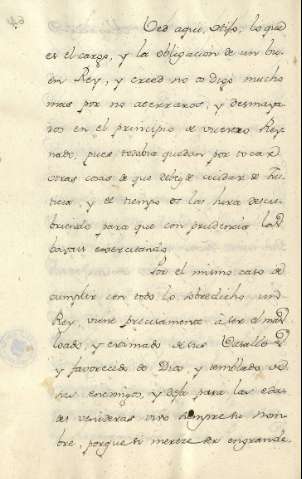 Ved aqui, Hijo, lo que
es el cargo, y la obligacion de un bu
en Rey, y creed no os digo mucho
mas por no aterraros, y desmaya
ros en el principio de vuestro Rey
nado, pues todabia quedan por tocar
otras cosas de que debeis cuidar
y el tiempo os las hara descu
briendo para que con prudencia las
bayais exercitando.
Por el mismo caso de
cumplir con todo lo sobredicho un
Rey, viene precisamente à ser
loado, y estimado de sus Vasallos
y favorecido de Dios, y temblado de
sus enemigos, y deja para las eda
des venideras vivo siempre su nom
bre, porque si merece ser engrande